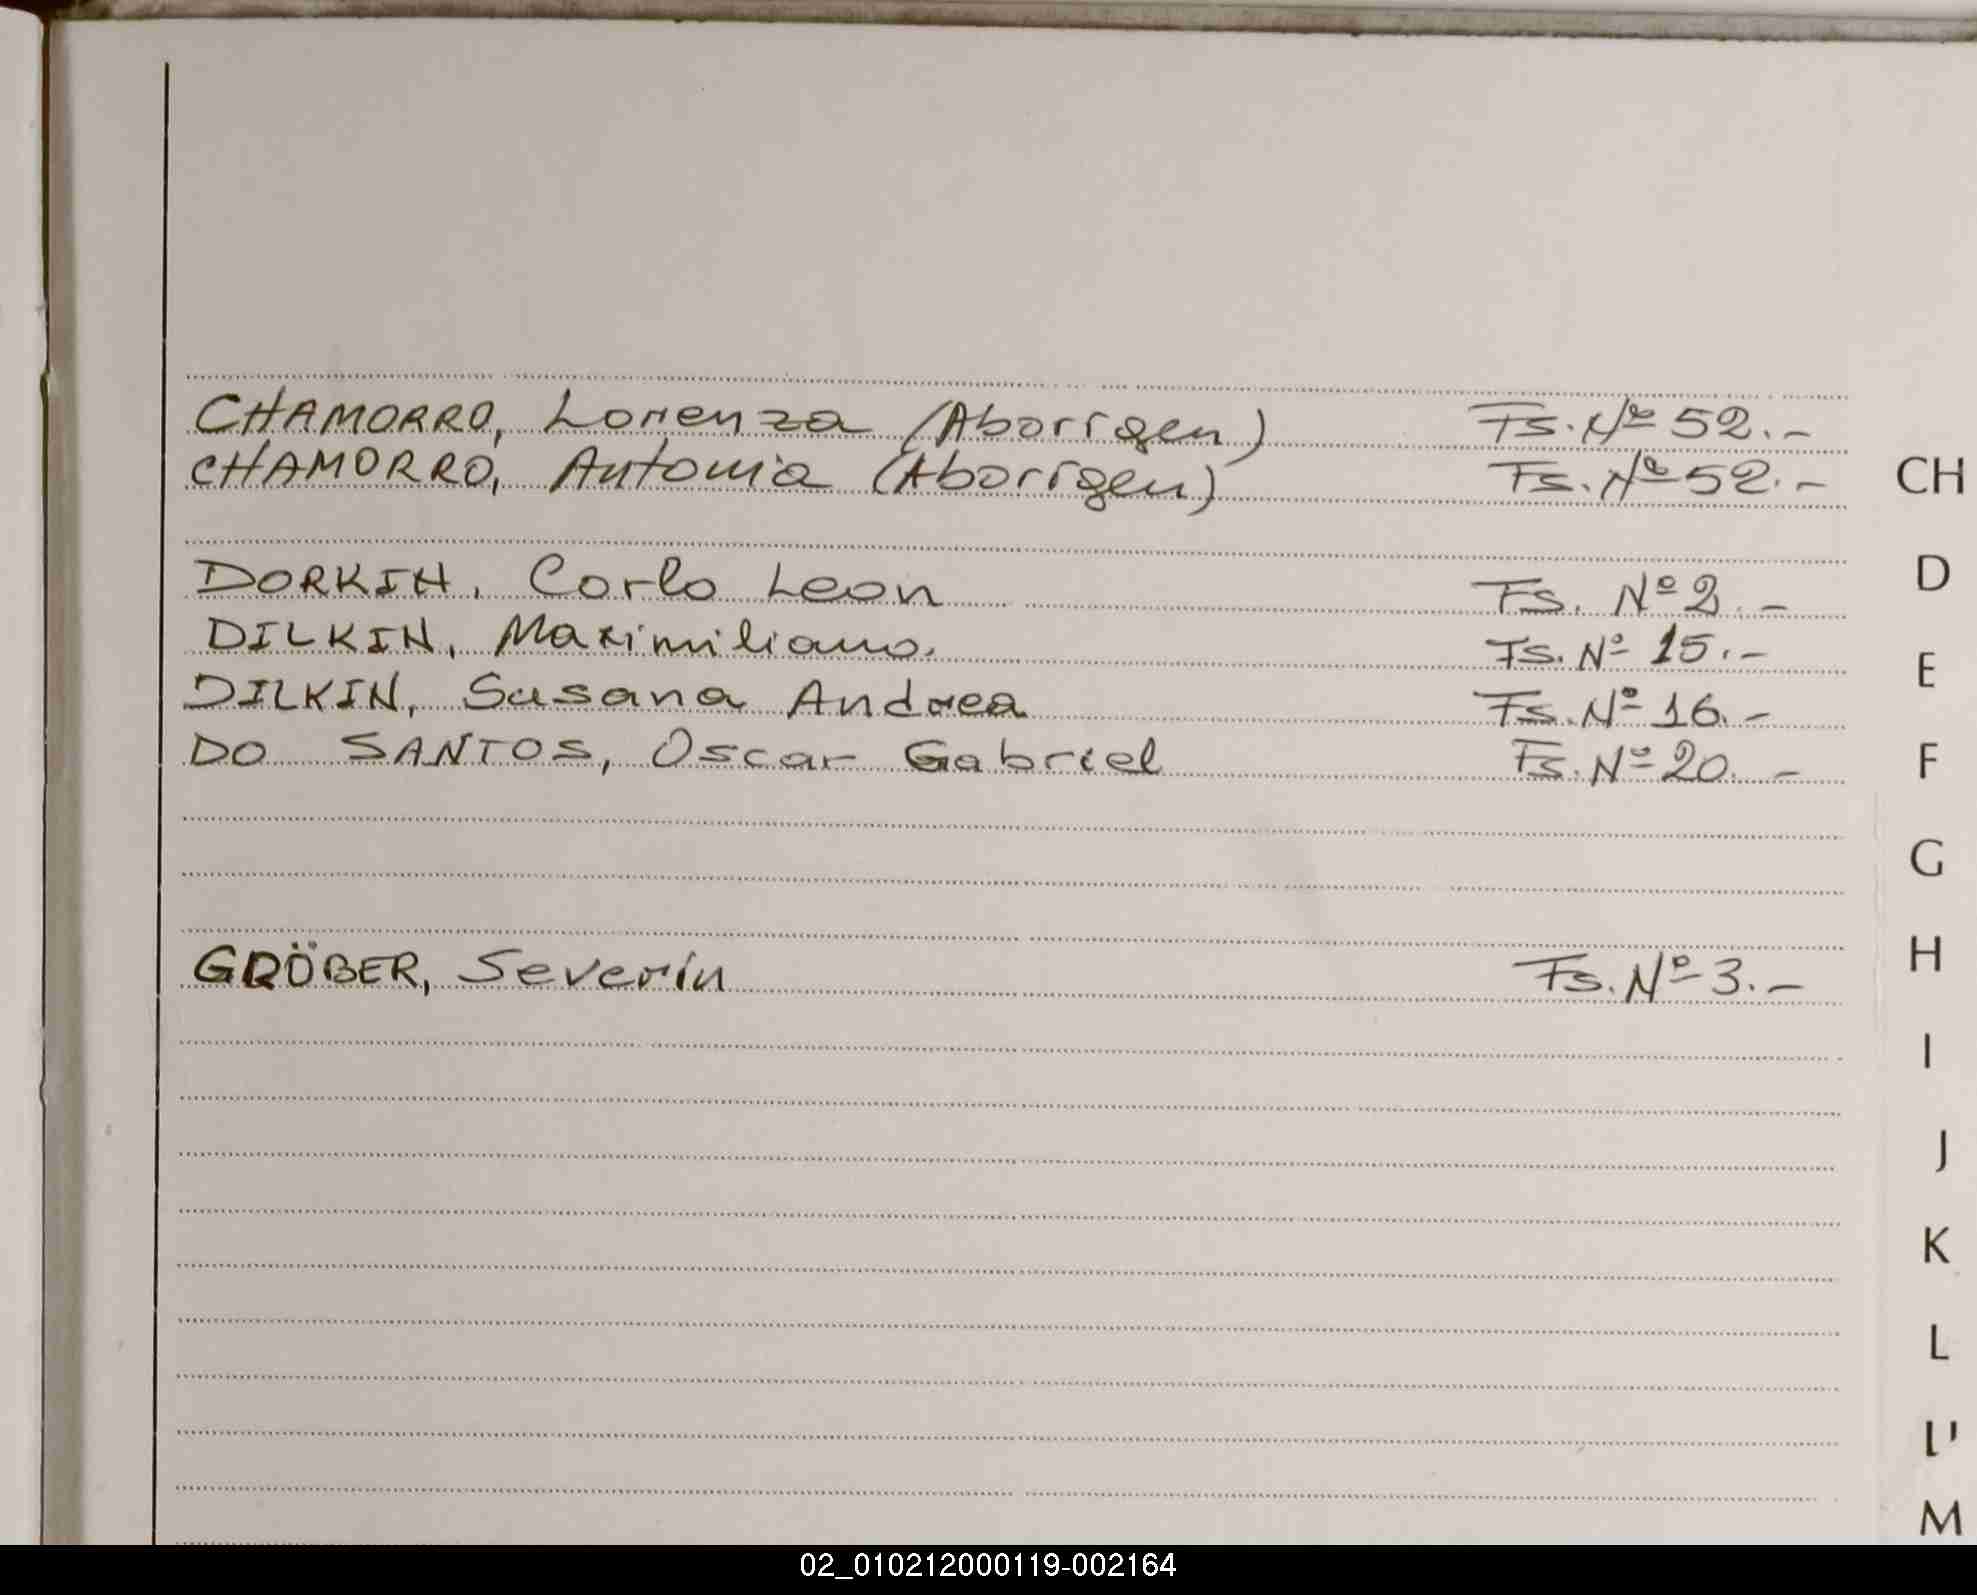 CHAMORRO, Lorenza (Aborígen) Fs. Nº 52.-
CHAMORRO, Antonia (Aborígen) Fs. Nº 52.-
CH
DORKIN, Carlo Leon Fs. Nº 2.-
D
DILKIN, Maximiliano. Fs. Nº 15.-
E
DILKIN, Susana Andrea Fs. Nº 16.-
DO SANTOS, Oscar Gabriel Fs. Nº 20.-
F
G
H
GRÖBER, Severín Fs. Nº 3.-
I
J
K
L
M
02_010212000119-002164